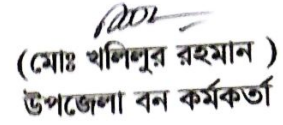 (মোঃ খলিলুর রহমান )
উপজেলা বন কর্মকর্তা